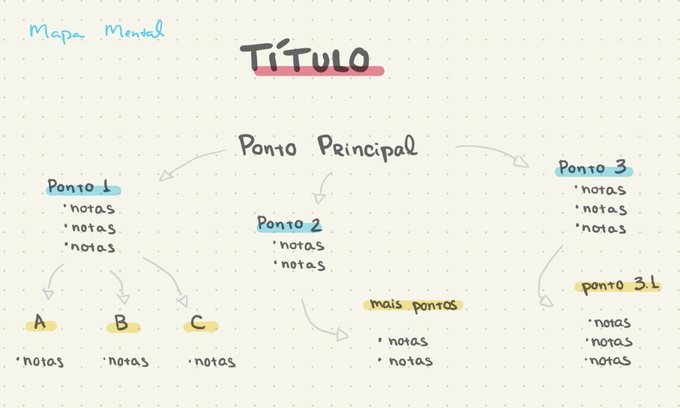 Mapa Mental
TÍTULO
Ponto Principal
Ponto 1
• notas
• notas
• notas
A
• notas
B
• notas
C
• notas
Ponto 2
• notas
• notas
mais pontos
• notas
• notas
Ponto 3
• notas
• notas
• notas
ponto 3.1
• notas
• notas
• notas